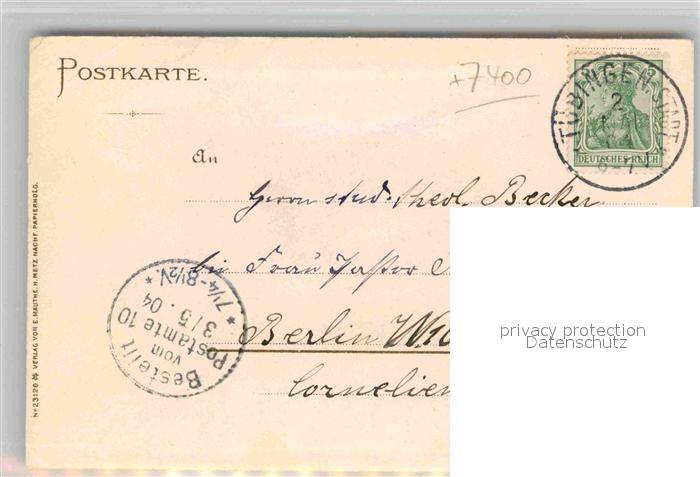 POSTKARTE.
+7400
TÜBINGEN STADT
2
DEUTSCHES REICH
An
Herrn stud. theol. Becker
bei Frau Pastor
Berlin W10
Cornelien
Bestellt
vom
Postamte 10
3/5.04
* 7¼-8½N. *
privacy protection
Datenschutz
No 23120 VERLAG VON E. MAUTHE, H. METZ NACHF. PAPIERHDLG.